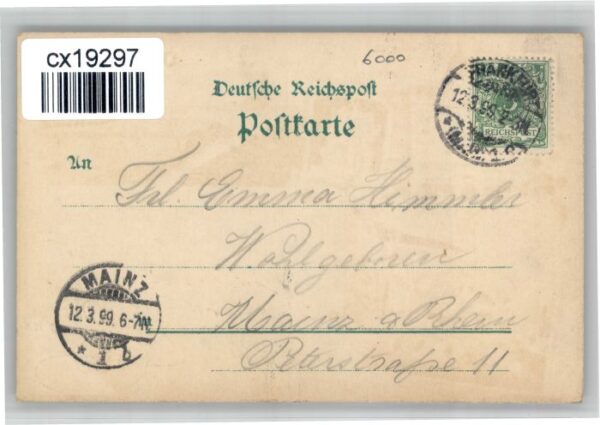 cx19297
6000
Deutsche Reichspost
Postkarte
An
FRANKFURT
12.3.99.
REICHSPOST
Frl. Emma Himmler
Wohlgeboren
Mainz a Rhein
11
MAINZ
12.3.99. 6-7N.
* 1 b